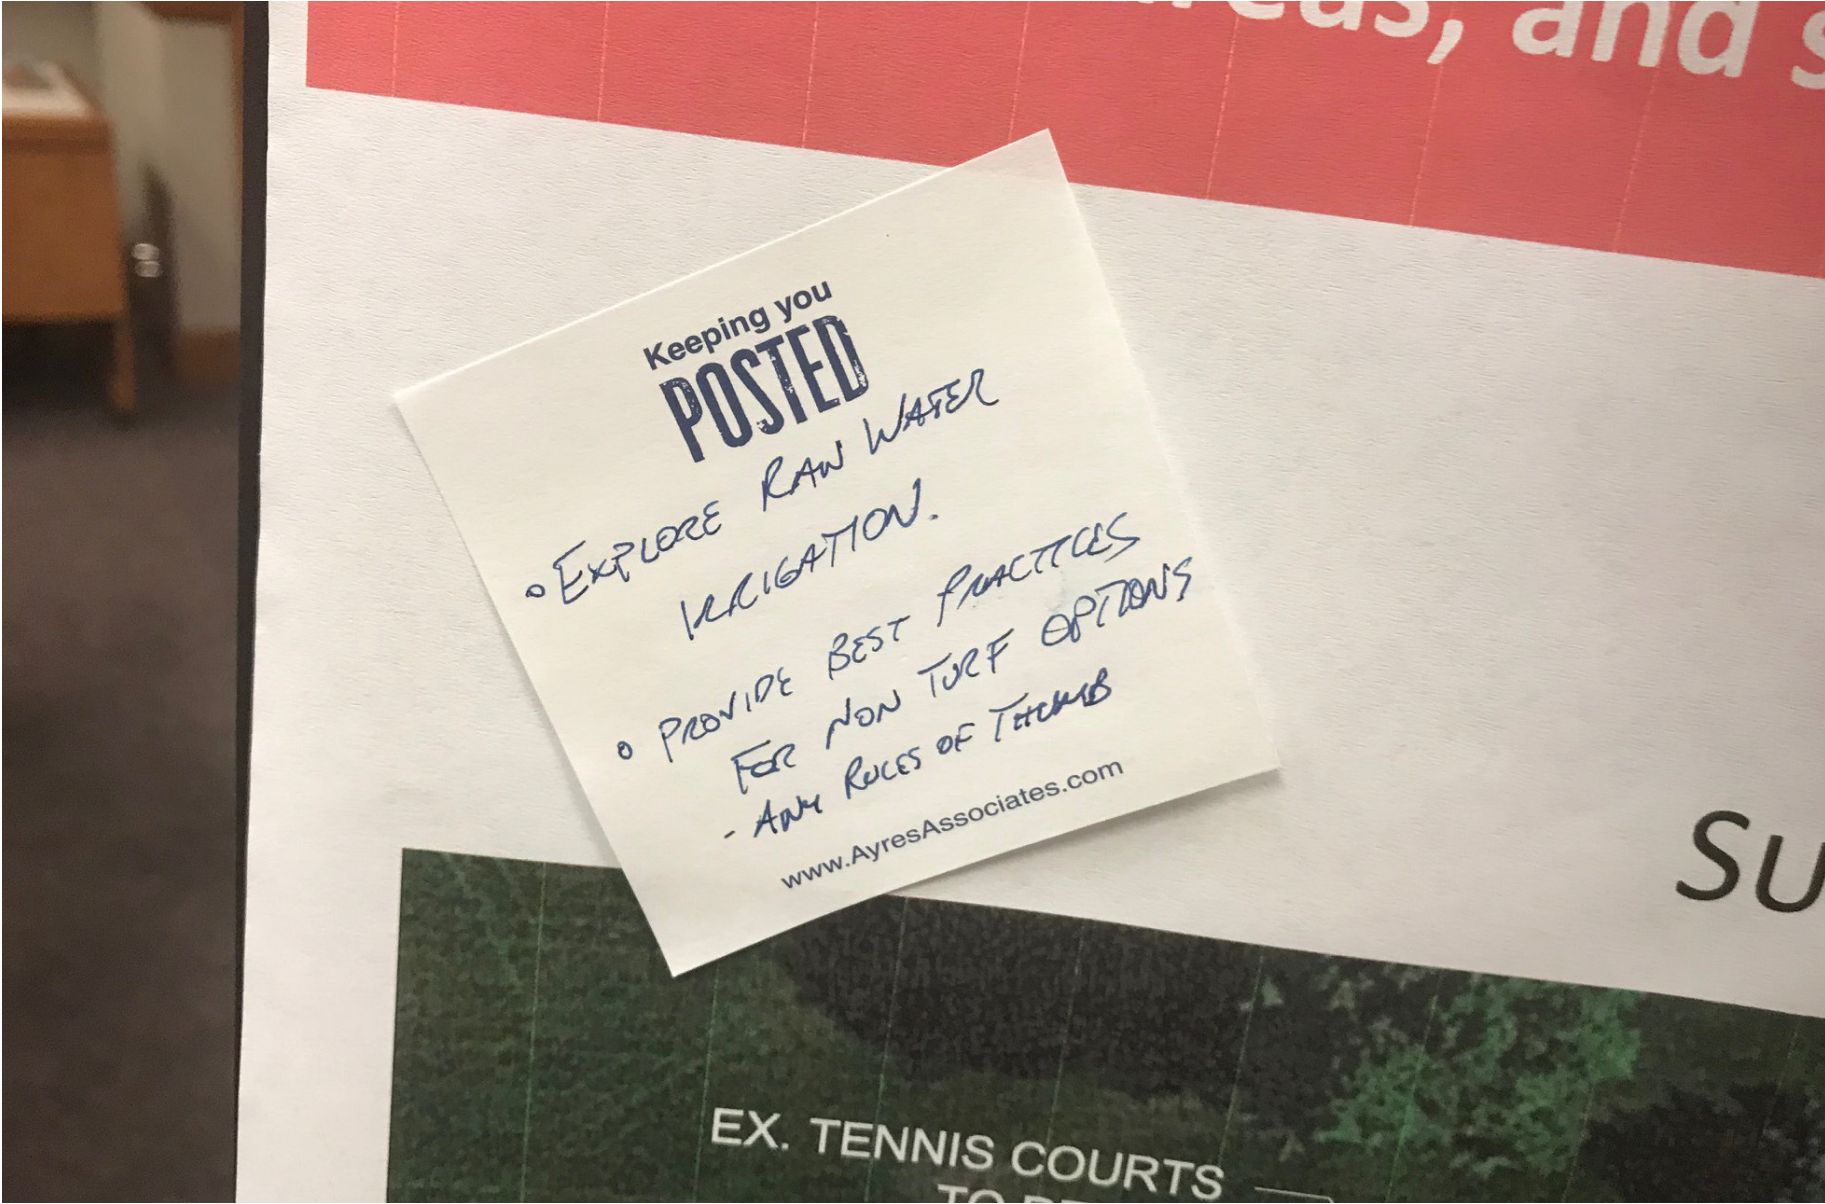 reas, and s
Keeping you
POSTED
• EXPLORE RAW WATER
IRRIGATION.
• PROVIDE BEST PRACTICES
FOR NON TURF OPTIONS
- ANY RULES OF THUMB
www.AyresAssociates.com
SU
EX. TENNIS COURTS
TO BE